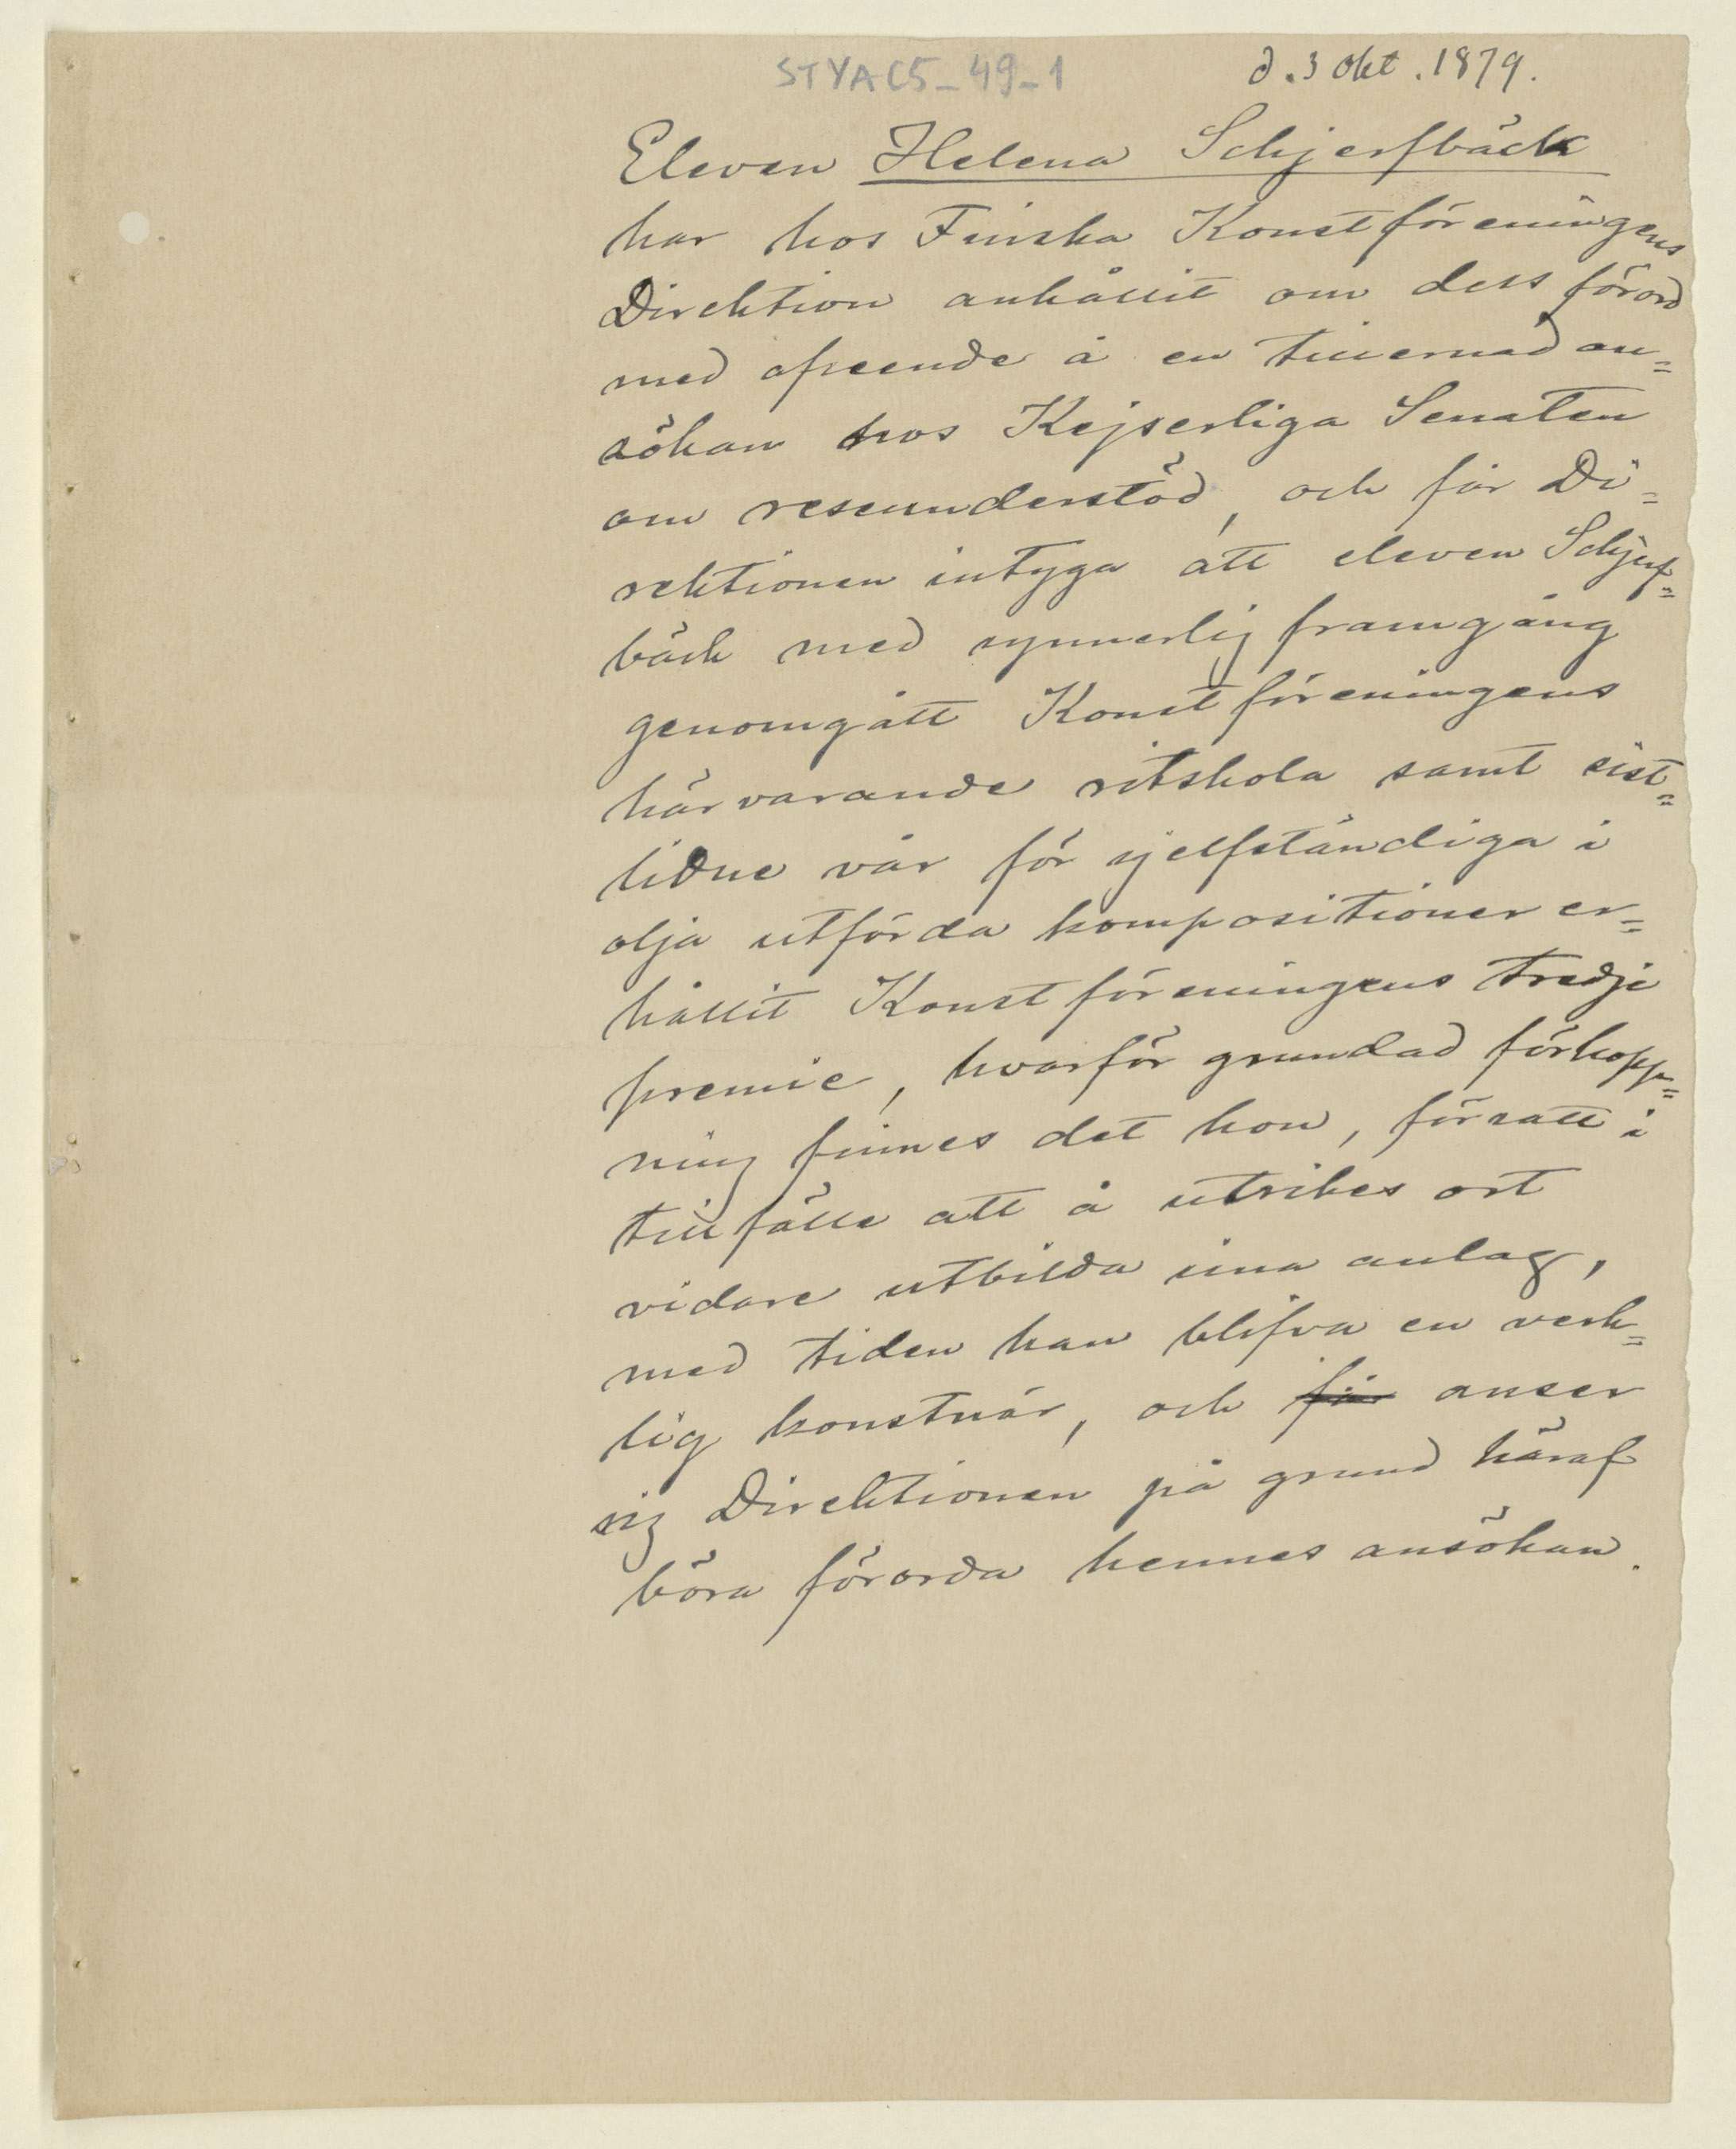 STYAC5_49_1
d. 3 Okt. 1879.
Eleven Helena Schjerfbäck
har hos Finska Konstföreningens
Direktion anhållit om dess förord
med afseende å en tillernad an=
sökan hos Kejserliga Senaten
om reseunderstöd, och får Di=
rektionen intyga att eleven Schjerf=
bäck med synnerlig framgång
genomgått Konstföreningens
härvarande ritskola samt sist=
lidne vår för sjelfständiga i
olja utförda kompositioner er=
hållit Konstföreningens tredje
premie, hvarför grundad förhopp=
ning finnes det hon, försatt i
tillfälle att å utrikes ort
vidare utbilda sina anlag,
med tiden kan blifva en verk=
lig konstnär, och får anser
sig Direktionen på grund häraf
böra förorda hennes ansökan.